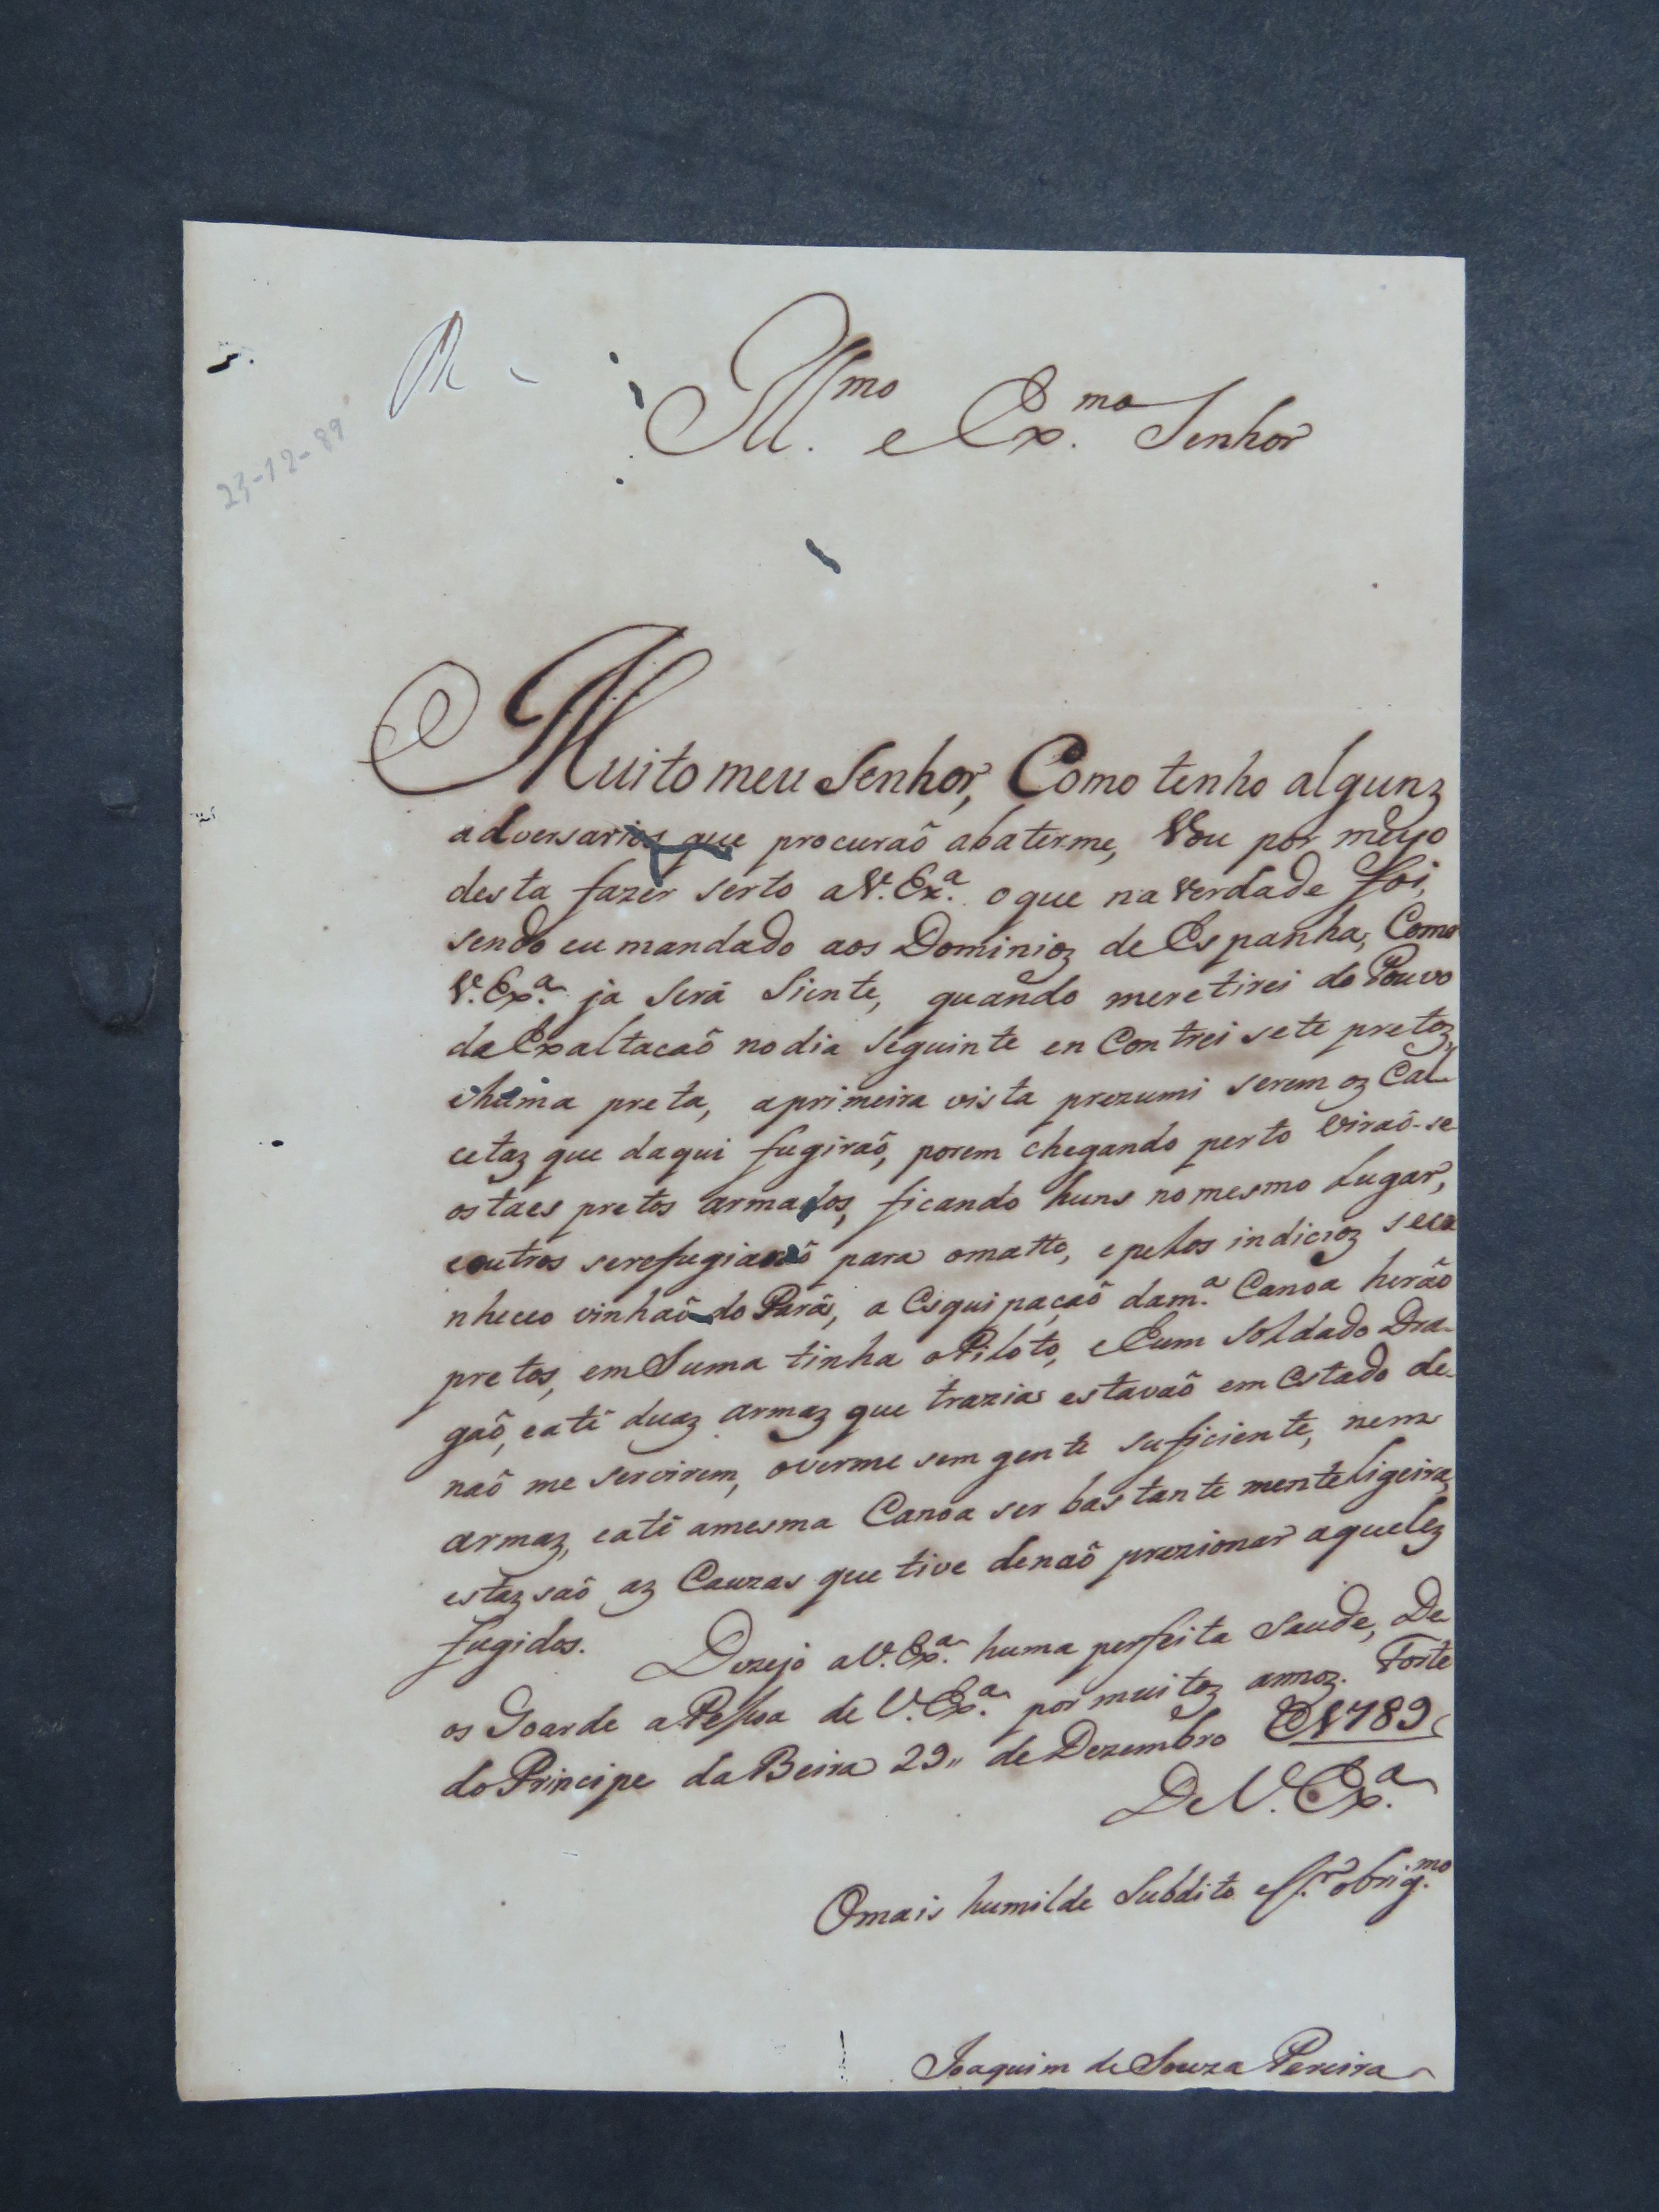 R.
23-12-89
Ill.mo e Ex.mo Senhor
Muito meu Senhor, Como tenho algunz
adversarios que procuraõ abaterme, Vou por meyo
desta fazer serto aV. Ex.a o que na verdade foi,
sendo eu mandado aos Dominioz de Espanha, Como
V. Ex.a ja Será Siente, quando meretirei do Pouvo
da Exaltacaõ no dia seguinte en Contrei sete pretoz,
ehuma preta, aprimeira vista prezumi serem oz Cal
cetaz que daqui fugiraõ, porem chegando perto viraõ-se
os taes pretos armados, ficando huns no mesmo Lugar,
eoutros serefugiaraõ para omatto, e pelos indicioz seco
nheceo vinhaõ do Pará, a Esquipaçaõ dam.a Canoa heraõ
pretos, em Suma tinha oPiloto, eCum Soldado Dra-
gaõ, eaté duaz armaz que trazia estavaõ em Estado de-
naõ me servirem, overme sem gente suficiente, nem
armaz, eaté amesma Canoa ser bastante mente ligeira,
estaz saõ az Cauzas que tive denaõ prezionar aquelez
fugidos. Dezejo aV. Ex.a huma perfeita Saude, De
os Goarde aPessoa de V. Ex.a por muitoz annoz. Forte
do Principe da Beira 29,, de Dezembro D1789
De V. Ex.a
Omais humilde Subdito eS.r obrig.mo
Joaquim de Souza Pereira